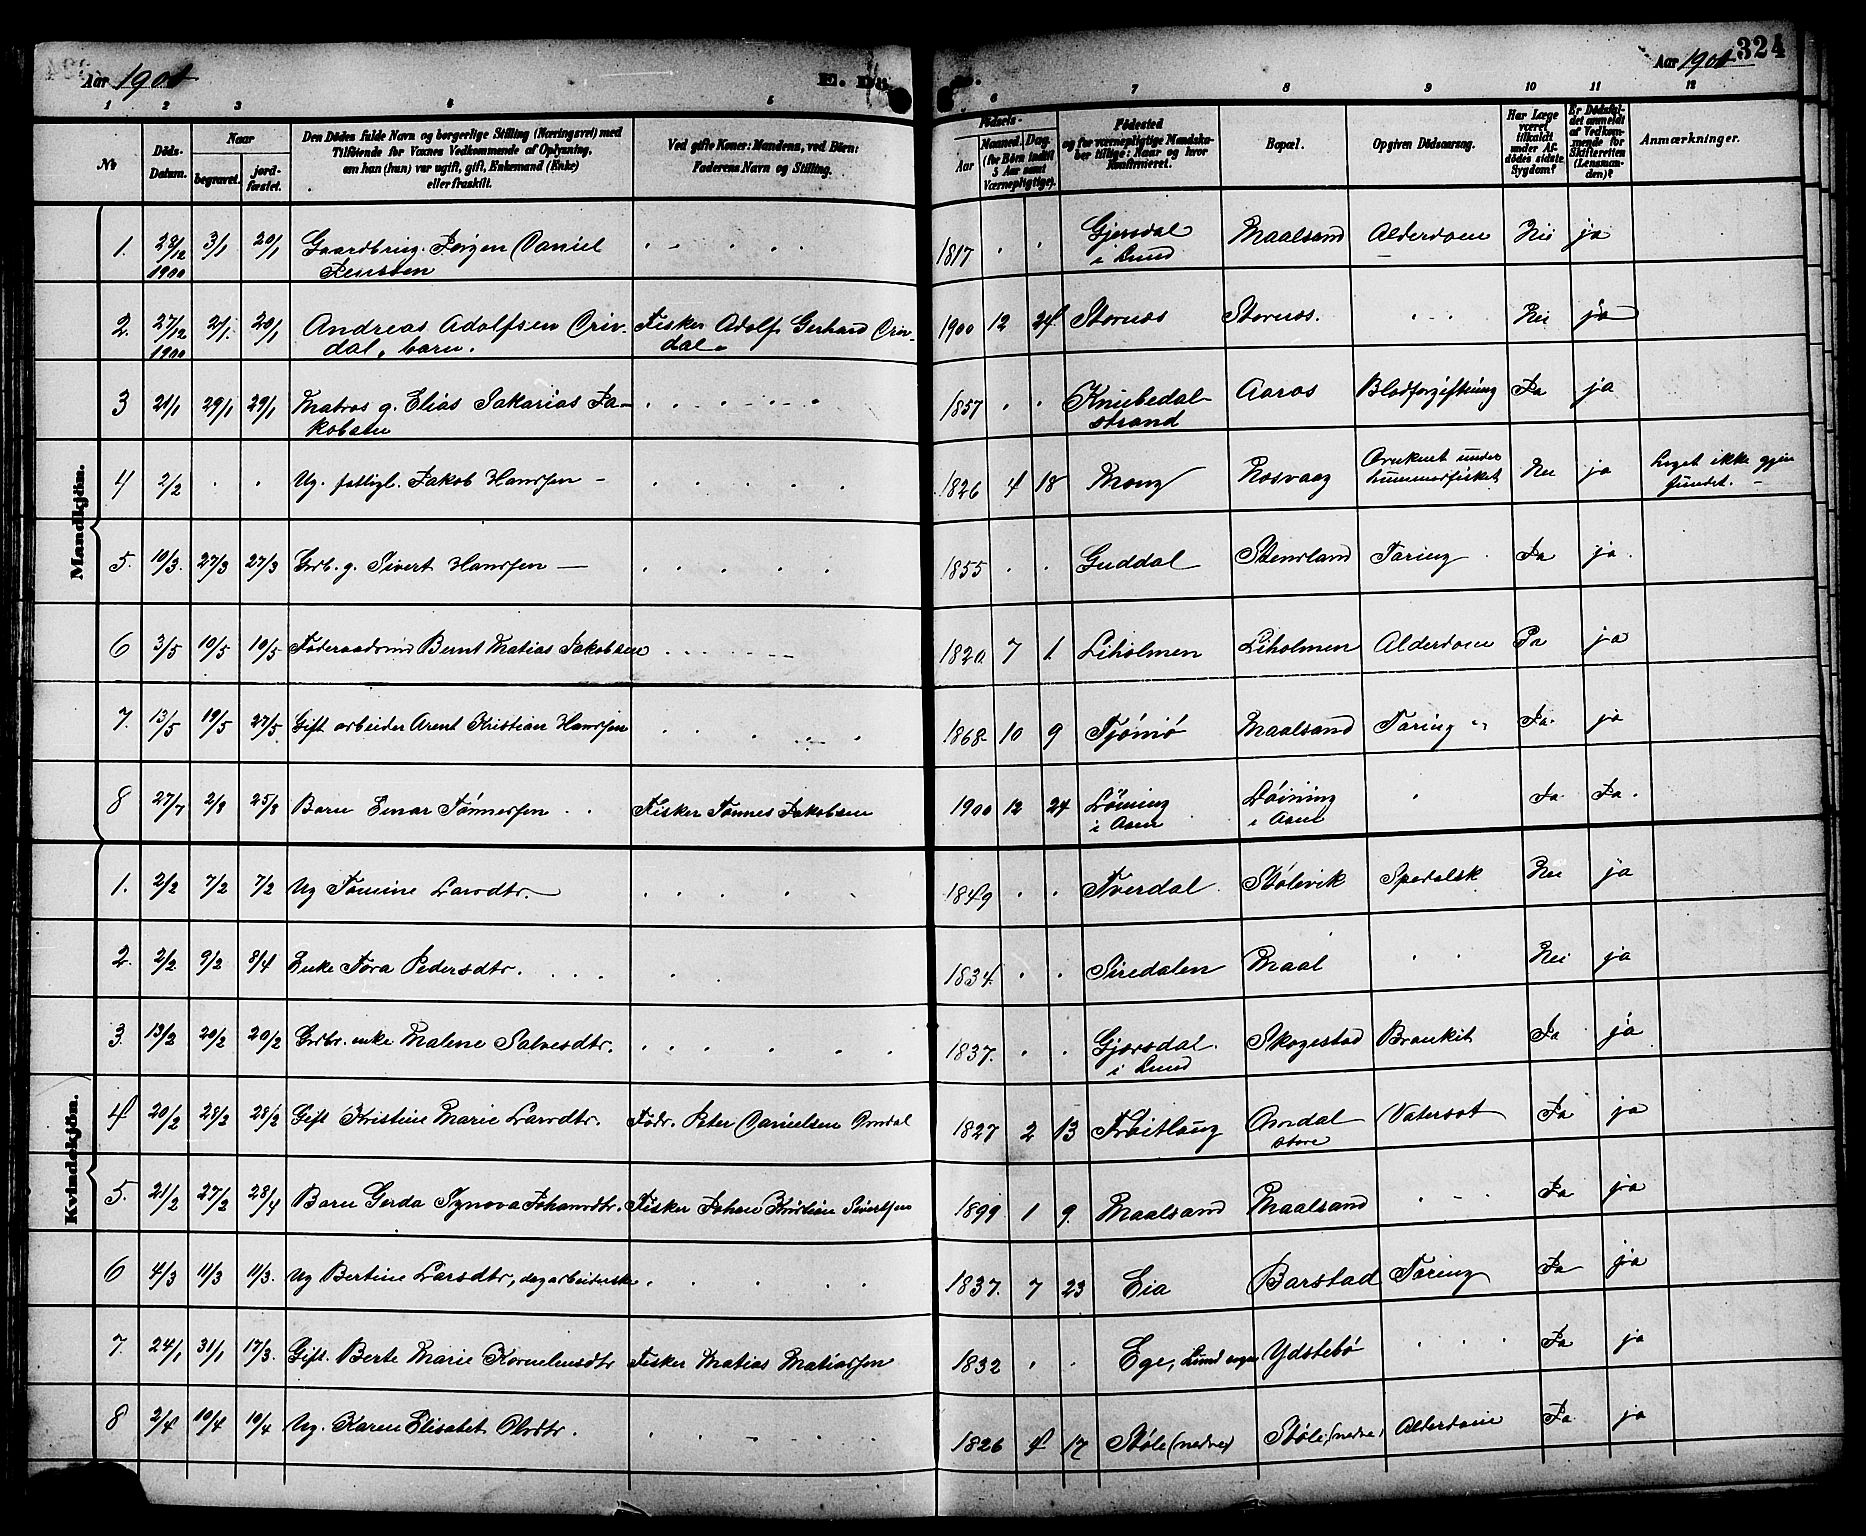 Aar 1901 E. Dö de. Aar 1901 324
1 2 3 4 5 6 7 8 9 10 11 12
No
Döds-
Datum.
Naar
begravet.
jord-
fæstet.
Den Dödes fulde Navn og borgerlige Stilling (Næringsvei) med
Tilföiende for Voxnes Vedkommende af Oplysning,
om han (hun) var ugift, gift, Enkemand (Enke)
eller fraskilt.
Ved gifte Koner: Mandens, ved Börn:
Faderens Navn og Stilling.
Födsels-
Aar
Maaned. Dag.
(for Börn indtil
5 Aar samt
Værnepligtige).
Födested
og for værnepligtige Mandska-
ber tillige: Naar og hvor
Konfirmeret.
Bopæl.
Opgiven Dödsaarsag.
Har Læge
været
tilkaldt
under Af-
dödes sidste
Sygdom?
Er Dödsfal-
det anmeldt
af Vedkom-
mende for
Skifteretten
(Lensman-
den)?
Anmærkninger.
Mandkjön.
1. 28/12 3/1 20/1 Gaardbrug. Jörgen Daniel 1817 Gjersdal Maalsand Alderdom Nei ja
1900 Jenssen i Lund
2. 27/12 2/1. 20/1 Andreas Adolfsen Omdal, barn. Fisker Adolf Gerhard Omdal. 1900 12 24 Stornes Stornes. Nei ja
1900
3 21/1 29/1 29/1 Matros g. Elias Sakarias Ja- 1857 Knubedal- Aaros Blodforgiftning Ja ja
kobsen strand
4 2/2 Ug. fattigl. Jakob Hansen 1826 4 18 Mong Rosvaag Druknet under Nei ja Liget ikke gjen
hummerfisket fundet.
5. 10/3. 27/3 27/3 Grb. g. Sivert Hansen 1855 Guddal Stensland Tæring Ja ja.
6 3/5 10/5 10/5 Föderaadsmd Bernt Matias Jakobsen 1820. 7 1. Liholmen Liholmen Alderdom Ja ja
7. 13/5 19/5 27/5. Gift arbeider Arent Kristian Hansen 1868 10 9 Tjömö Maalsand Tæring Ja. ja
8 27/7 2/8 25/8 Barn Einar Tönnesen Fisker Tönnes Jakobsen 1900 12 24 Löining Löining Ja Ja.
i Aaen i Aaen
Kvindekjön.
1. 2/2 7/2 7/2 Ug Tomine Larsdtr. 1849 Tverdal Stölsvik Spedalsk Nei ja
2. 2/2 9/2 8/4 Enke Tora Pedersdtr. 1834. Siredalen Maal Nei ja
3. 13/2 20/2 20/2 Grdbr. enke Malene Salvesdtr. 1837. Gjersdal Skogestad Bronkit Ja ja
i Lund
4 20/2 28/2 28/2 Gift Kristine Marie Larsdtr. Födr. Peter Danielsen Omdal 1827 2 13 Fröitlaug Omdal Vatersot Ja ja
store
5. 21/2 27/2 28/4 Barn Gerda Synova Johansdtr. Fisker Johan Kristian Sivertsen 1899 1 9. Maalsand Maalsand Ja ja
6 4/3 11/3 11/3. Ug Bertine Larsdtr, dagarbeiderske 1837. 7 23 Eia Barstad Tæring Ja ja
7. 24/1 31/1 17/3. Gift. Berte Marie Korneliusdtr Fisker Matias Matiassen 1832 Ege, Lund sogn Ydstebö Ja ja
8 2/4 10/4 10/4 Ug. Karen Elisabet Olsdtr. 1826 4 17 Støle (nedre) Støle (nedre) Alderdom Ja ja